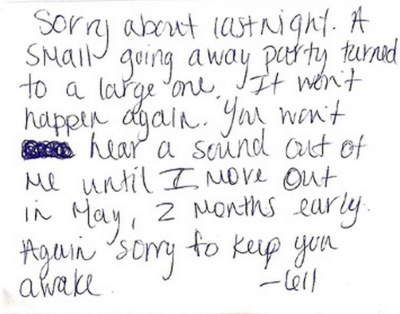 Sorry about last night. A
small going away party turned
to a large one. It won't
happen again. You won't
hear a sound out of
me until I move out
in May, 2 months early.
Again sorry to keep you
awake. -611